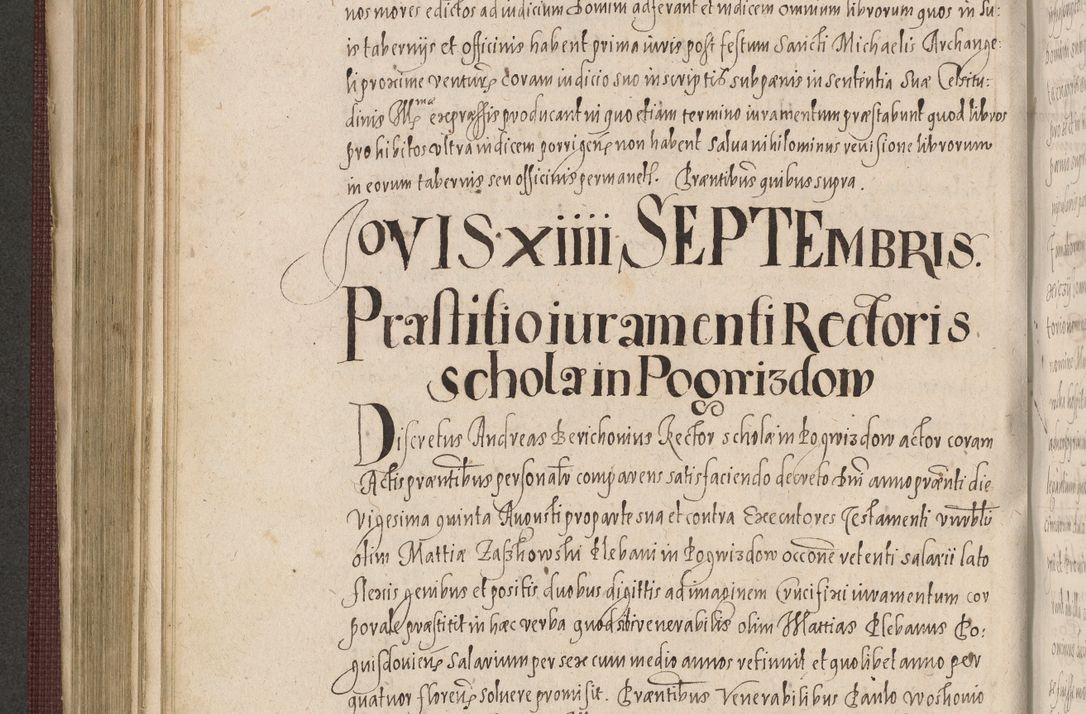 nos mores edictos ad iudicium Domini adferant et indicem omnium librorum quos in su:
is tabernijs et officinis habent prima iuris post festum Sancti Michaelis Archange
li proxime venturę coram iudicio suo inscriptis sub pœnis in sententia Suæ Celsitu:
dinis Illmę expræssis producant in quo etiam termino iuramentum præstabunt quod libros
prohibitos ultra indicem porrigenę non habent salva nihilominus revisione librorum
in eorum tabernis seu officinis permanetl. Præntibus quibus supra.
JOVIS XIIII SEPTEMBRIS.
Præstitio iuramenti Rectoris
scholæ in Pogwizdow
Discretus Andreas Berichonius Rector scholæ in Pogwizdow actor coram
Actis præntibus personalr comparens satisfaciendo decreto Dni anno prænti die
vigesima quinta Augusti pro parte sua et contra Executores Testamenti vnrblis
olim Mattiæ Zaszkowski Plebani in Pogwizdow occõne retenti salarii lato
flexis genibus et positis duobus digittis ad imaginem Crucifixi iuramentum cor
porale præstitit in hæc verba quod sibi venerabilis olim Mattias Plebanus Po:
guisdovienę salarium per sex cum medio annos retinuit et quolibet anno per
quatuor florenę solvere promisit. Præntibus Venerabilibus Paulo Woshonio